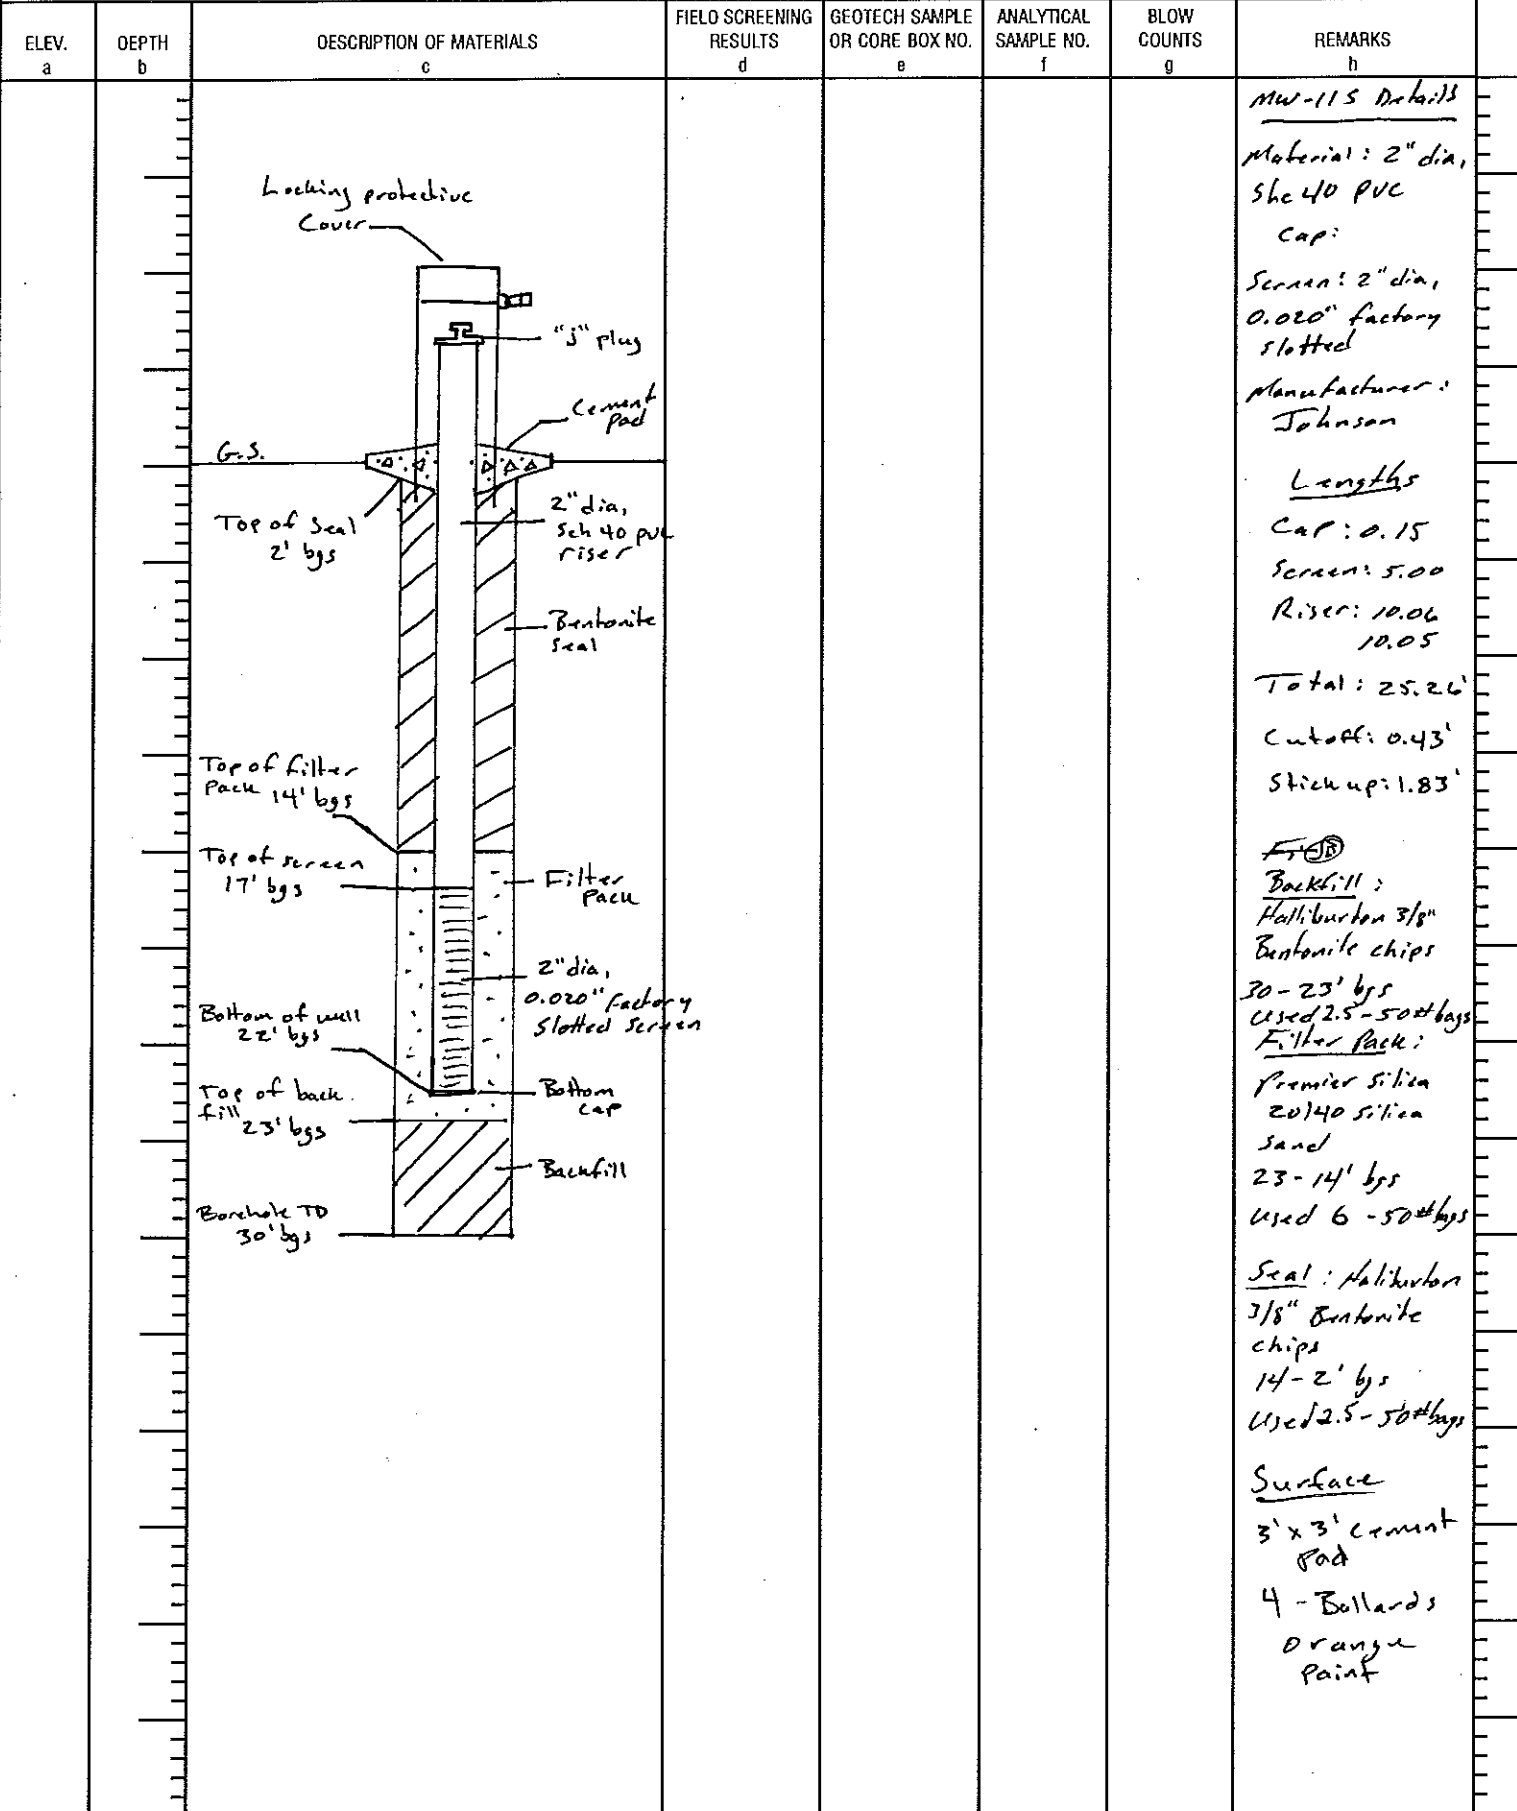 ELEV.
a
DEPTH
b
DESCRIPTION OF MATERIALS
c
FIELD SCREENING
RESULTS
d
GEOTECH SAMPLE
OR CORE BOX NO.
e
ANALYTICAL
SAMPLE NO.
f
BLOW
COUNTS
g
REMARKS
h
Locking protective
Cover
"J" plug
Cement
pad
G.S.
Top of Seal
2' bgs
2" dia,
Sch 40 PVC
riser
Bentonite
seal
Top of filter
pack 14' bgs
Top of screen
17' bgs
Filter
pack
2" dia,
0.020" factory
slotted screen
Bottom of well
22' bgs
Bottom
cap
Top of back
fill 23' bgs
Backfill
Borehole TD
30' bgs
MW-11S Details
Material: 2" dia,
Shc 40 PVC
Cap:
Screen: 2" dia,
0.020" factory
slotted
Manufacturer:
Johnson
Lengths
Cap: 0.15
Screen: 5.00
Riser: 10.06
10.05
Total: 25.26'
Cutoff: 0.43'
Stick up: 1.83'
Fi JB
Backfill:
Halliburton 3/8"
Bentonite chips
30-23' bgs
Used 2.5-50# bags
Filter Pack:
Premier Silica
20/40 silica
sand
23-14' bgs
Used 6 -50# bags
Seal: Haliburton
3/8" Bentonite
chips
14-2' bgs
Used 2.5-50# bags
Surface
3' x 3' cement
pad
4 - Bollards
orange
paint